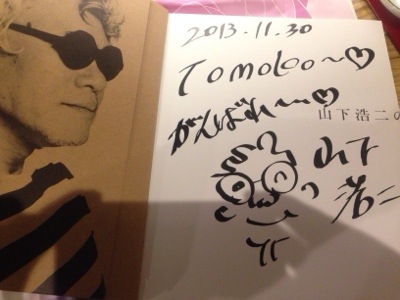 2013.11.30
Tomoloo~♡
がんばれ~♡
山下浩二の
山下
浩二